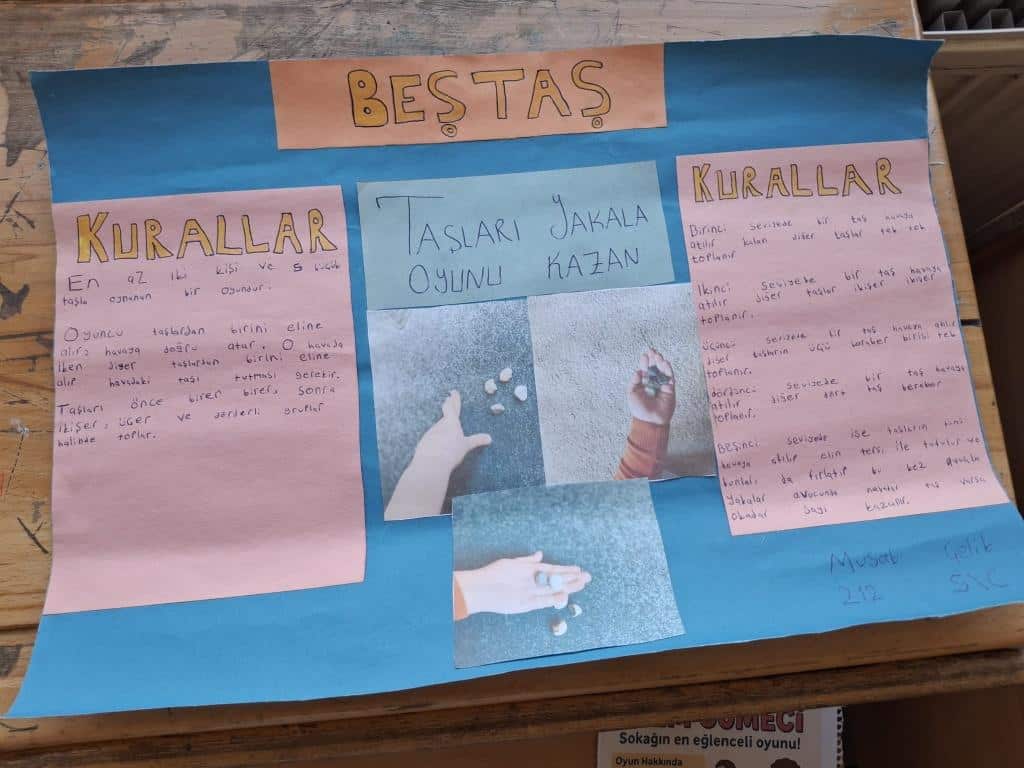 BEŞTAŞ
KURALLAR
En az iki kişi ve 5 küçük
taşla oynanan bir oyundur.
Oyuncu taşlardan birini eline
alır, havaya doğru atar. O havada
iken diğer taşlardan birini eline
alıp havadaki taşı tutması gerekir.
Taşları önce birer birer, sonra
ikişer, üçer ve dörderli gruplar
halinde toplar.
TAŞLARI YAKALA
OYUNU KAZAN
KURALLAR
Birinci seviyede bir taş havaya
atılır kalan diğer taşlar tek tek
toplanır
İkinci seviyede bir taş havaya
atılır diğer taşlar ikişer ikişer
toplanır.
üçüncü seviyede bir taş havaya atılır
diğer taşların üçü beraber birisi tek
toplanır.
dördüncü seviyede bir taş havaya
atılır diğer dört taş beraber
toplanır.
Beşinci seviyede ise taşların
havaya atılıp elin tersi ile tutulur ve
bunları da fırlatıp bu kez
yakalar avucunda taş varsa
okadar sayı kazanır.
Çelik
212 5\C
Sokağın en eğlenceli oyunu!
Oyun Hakkında